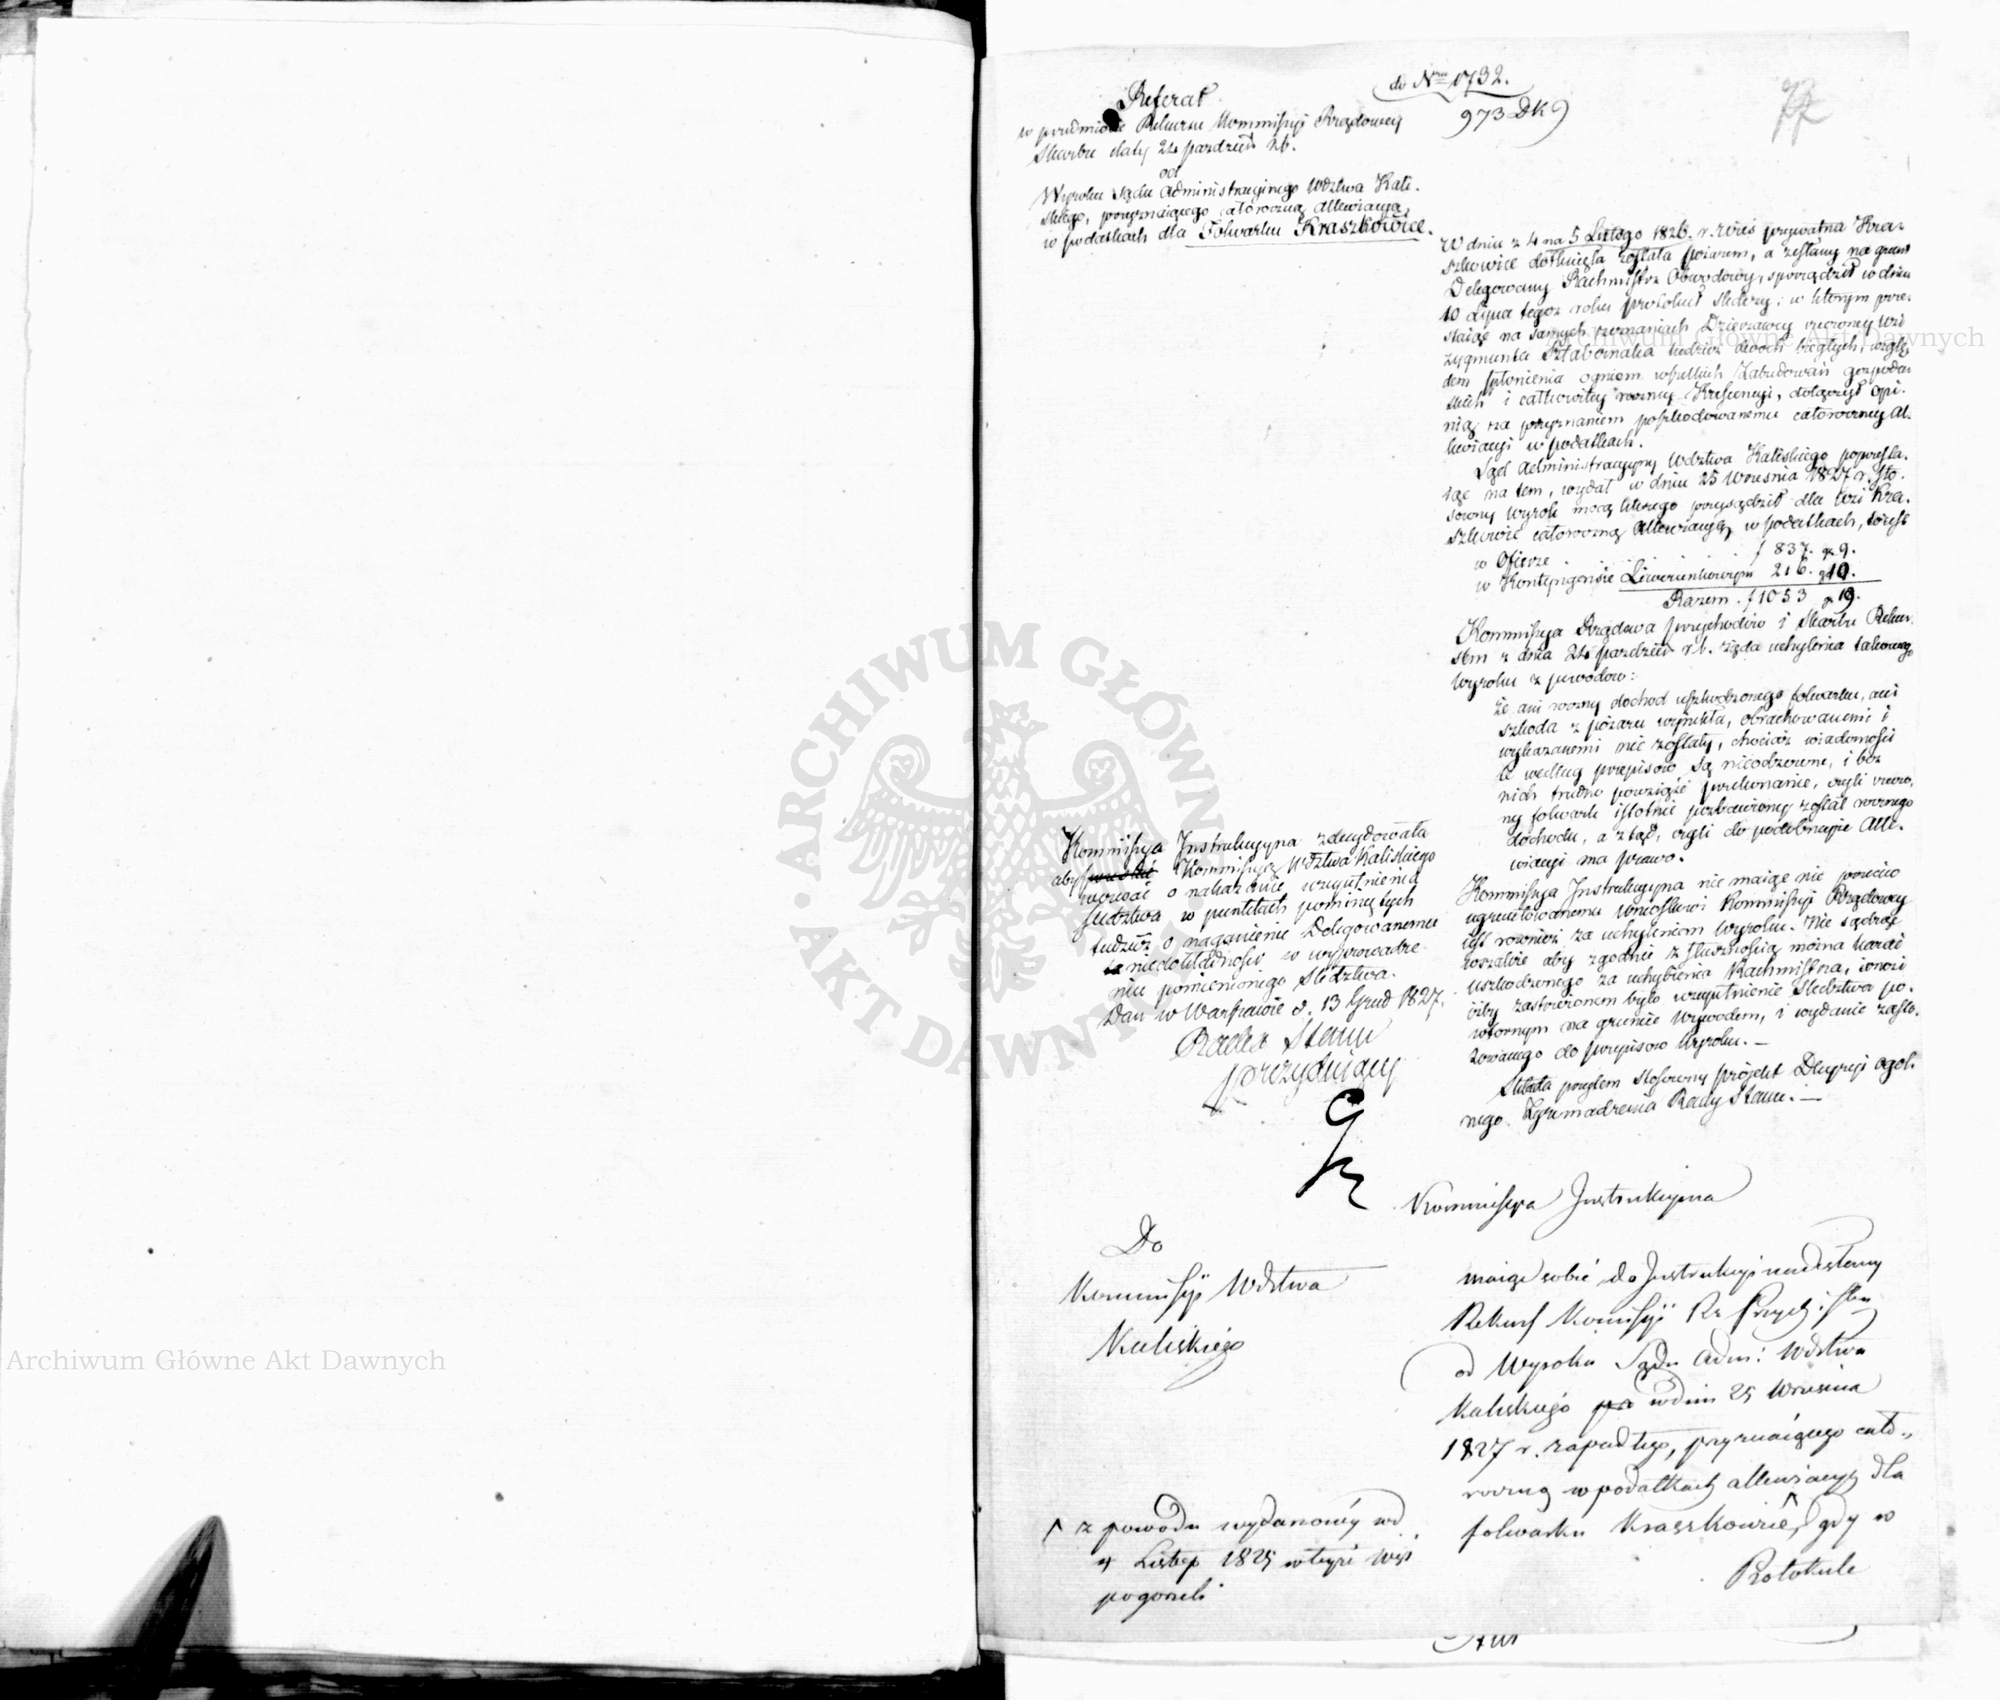 do Nro 1732.
973 DK
77
Referat
w przedmiocie Rekursu Kommissyi Rządowey
Skarbu daty 24 pazdzier r.b.
od
Wyroku Sądu Administracyinego Wdztwa Kali-
skiego, przyznaiącego całoroczną allewiacyą
w podatkach dla Folwarku Kraszkowice.
W dniu z 4 na 5 Lutego 1826. r. wieś prywatna Kra-
szkowice dotknięta została pożarem, a zesłany na grunt
Delegowany Rachmistrz Obwodowy, sporządził w dniu
10 Lipca tegoż roku protokuł śledczy, w którym prze-
staiąc na samych zeznaniach Dzierzawcy rzeczoney Wsi
Zygmunta tudzież dwoch biegłych, wzglę-
dem spłonienia ogniem wszelkich Zabudowań gospodar-
skich i całkowitey roczney Krescencyi, dołączył opi-
nią za przyznaniem poszkodowanemu całoroczney al-
lewiacyi w podatkach.
Sąd Administracyiny Wdztwa Kaliskiego poprzesta-
iąc na tem, wydał w dniu 25 Wrzesnia 1827 r. sto-
sowny Wyrok mocą ktorego przysądził dla Wsi Kra-
szkowic całoroczną Allewiacyą w podatkach, to iest
w Ofierze f 837. gr 9.
w Kontyngensie Liwerunkowym 216. gr 10.
Razem f 1053 gr 19.
Kommissya Rządowa przychodów i Skarbu Rekur-
sem z dnia 24 pazdzier r.b. żąda uchylenia takowego
Wyroku z powodów:
że ani roczny dochod uszkodzonego folwarku, ani
szkoda z pożaru wynikła, obrachowanemi i
wykazanemi nie zostały, chociaż wiadomości
te według przepisow są nieodzowne, i bez
nich trudno powziąść przekonanie, czyli rzeczo-
ny folwark istotnie pozbawiony został rocznego
dochodu, a ztąd, czyli do podobneyże Alle-
wiacyi ma prawo.
Kommissya Instrukcyyna nie maiąc nic przeciw
ugruntowanemu Wnioskowi Kommissyi Rządowey
iest rownież za uchyleniem Wyroku. Nie sądząc
wszakże aby zgodnie z słusznością można karać
uszkodzonego za uchybienia Rachmistrza, wnosi
iżby zastrzeżonem było uzupełnienie Sledztwa po-
wtornym na gruncie Wywodem, i wydanie zasto-
sowanego do przepisow Wyroku. —
Składa przytem stosowny projekt Decyzyi ogol-
nego Zgromadzenia Rady Stanu. —
Kommissya Instrukcyyna zdecydowała
aby Kommissyą Wdztwa Kaliskiego
wezwać o nakazanie uzupełnienia
śledztwa w punktach pominiętych
tudzież o naganienie Delegowanemu
niedokładności w wyprowadze-
niu pomienionego Sledztwa.
Dan w Warszawie d. 13 Grud 1827.
Radca Stanu
prezyduiący
Kommissya Instrukcyina
Do
Kommissyi Wdztwa
Kaliskiego
maiąc sobie do Instrukcyi nadesłany
Rekurs Komissyi Rz Przych i Skar
od Wyroku Sądu Adm: Wdztwa
Kaliskiego w dniu 25 Wrzesnia
1827 r. zapadłego, przyznaiącego cało-
roczną w podatkach allewiacyą dla
folwarku Kraszkowice, gdy w
Protokule
z powodu wydarzoney w d
4 1825 w teyże wsi
pogorzeli
Archiwum Główne Akt Dawnych
Archiwum Główne Akt Dawnych
ARCHIWUM GŁÓWNE AKT DAWNYCH